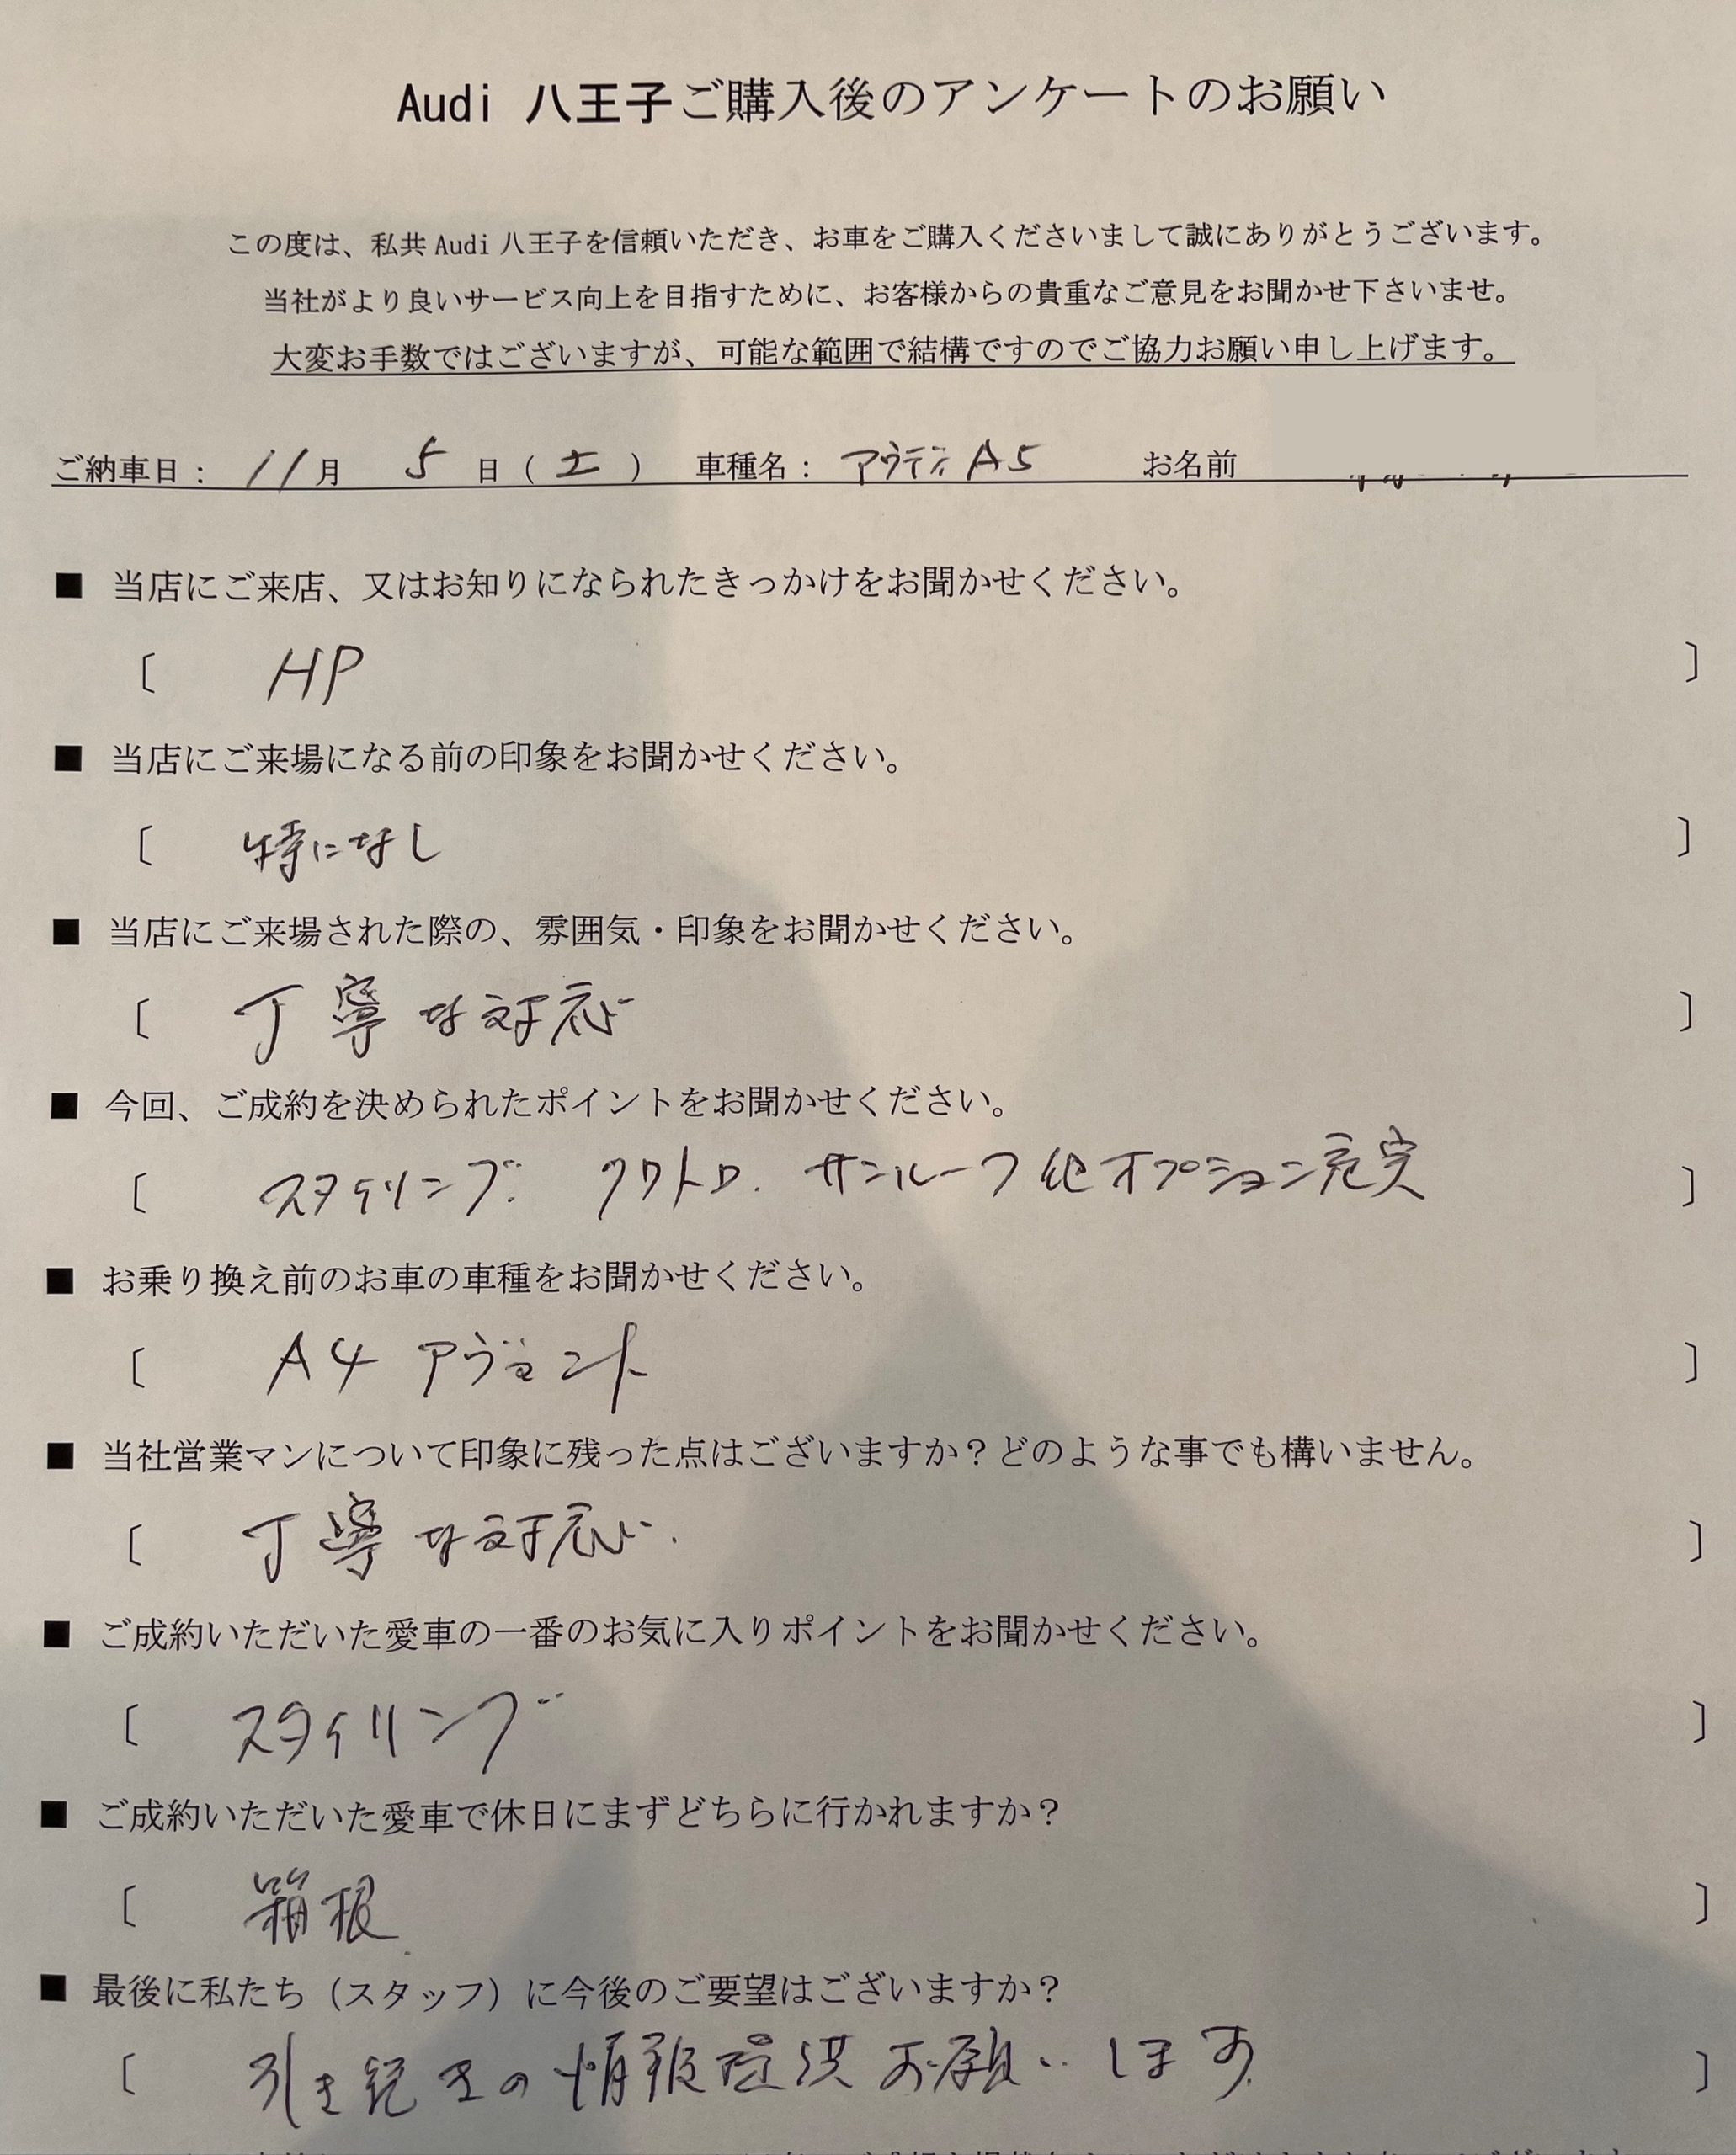 Audi 八王子ご購入後のアンケートのお願い
この度は、私共 Audi 八王子を信頼いただき、お車をご購入くださいまして誠にありがとうございます。
当社がより良いサービス向上を目指すために、お客様からの貴重なご意見をお聞かせ下さいませ。
大変お手数ではございますが、可能な範囲で結構ですのでご協力お願い申し上げます。
ご納車日： 11月 5日（土） 車種名：アウディA5 お名前
■ 当店にご来店、又はお知りになられたきっかけをお聞かせください。
〔 HP 〕
■ 当店にご来場になる前の印象をお聞かせください。
〔 特になし 〕
■ 当店にご来場された際の、雰囲気・印象をお聞かせください。
〔 丁寧な対応 〕
■ 今回、ご成約を決められたポイントをお聞かせください。
〔 スタイリング. クワトロ. サンルーフ他オプション充実 〕
■ お乗り換え前のお車の車種をお聞かせください。
〔 A4 アヴァント 〕
■ 当社営業マンについて印象に残った点はございますか？どのような事でも構いません。
〔 丁寧な対応. 〕
■ ご成約いただいた愛車の一番のお気に入りポイントをお聞かせください。
〔 スタイリング 〕
■ ご成約いただいた愛車で休日にまずどちらに行かれますか？
〔 箱根. 〕
■ 最後に私たち（スタッフ）に今後のご要望はございますか？
〔 引き続きの情報提供お願いします. 〕